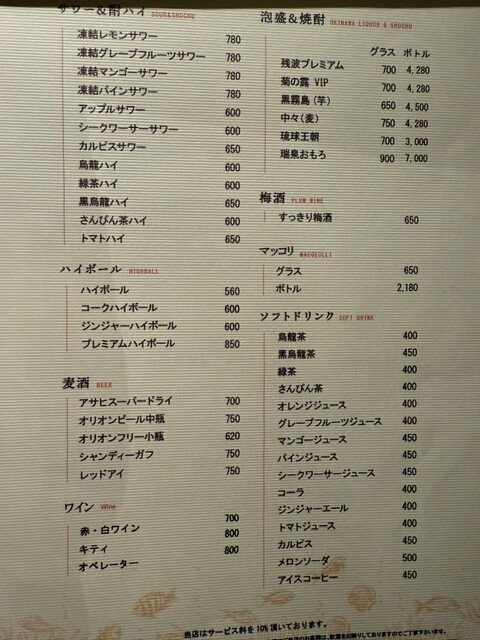 サワー&酎ハイ SOUR&SHOCHU
凍結レモンサワー 780
凍結グレープフルーツサワー 780
凍結マンゴーサワー 780
凍結パインサワー 780
アップルサワー 600
シークワーサーサワー 600
カルピスサワー 650
烏龍ハイ 600
緑茶ハイ 600
黒烏龍ハイ 650
さんぴん茶ハイ 600
トマトハイ 650
ハイボール HIGHBALL
ハイボール 560
コークハイボール 600
ジンジャーハイボール 600
プレミアムハイボール 850
麦酒 BEER
アサヒスーパードライ 700
オリオンビール中瓶 750
オリオンフリー小瓶 620
シャンディーガフ 750
レッドアイ 750
ワイン Wine
700
赤・白ワイン 800
キティ 800
オペレーター
泡盛&焼酎 OKINAWA LIQUOR & SHOCHU
グラス ボトル
残波プレミアム 700 4,280
菊の露 VIP 700 4,280
黒霧島(芋) 650 4,500
中々(麦) 750 4,280
琉球王朝 700 3,000
瑞泉おもろ 900 7,000
梅酒 PLUM WINE
すっきり梅酒 650
マッコリ MACGEOLLI
グラス 650
ボトル 2,180
ソフトドリンク SOFT DRINK
烏龍茶 400
黒烏龍茶 450
緑茶 400
さんぴん茶 400
オレンジジュース 400
グレープフルーツジュース 400
マンゴージュース 450
パインジュース 450
シークワーサージュース 450
コーラ 400
ジンジャーエール 400
トマトジュース 400
カルピス 450
メロンソーダ 500
アイスコーヒー 450
当店はサービス料を10%頂いております。